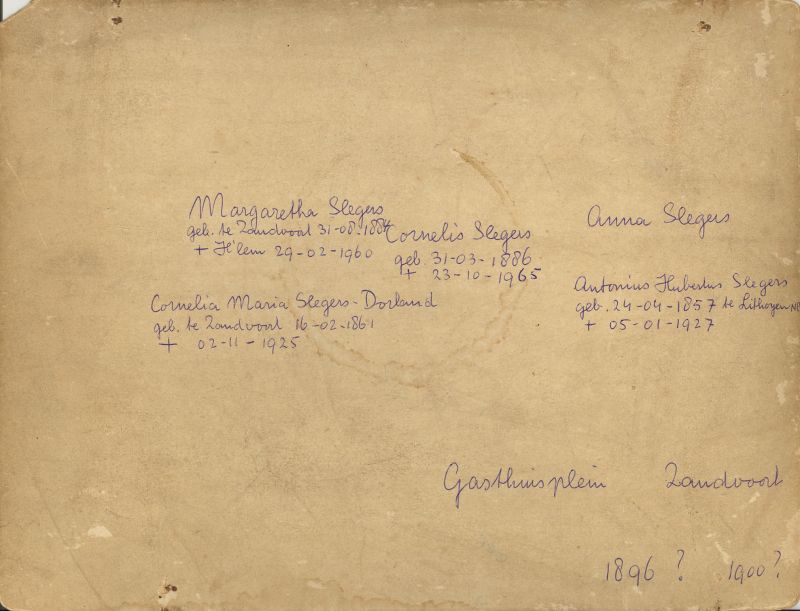 Margaretha Slegers
geb. te Zandvoort 31-08-1884
+ H'lem 29-02-1960
Cornelis Slegers
geb. 31-03-1886
+ 23-10-1965
Anna Slegers
Cornelia Maria Slegers-Dorland
geb. te Zandvoort 16-02-1861
+ 02-11-1925
Antonius Hubertus Slegers
geb. 24-04-1857 te Lithoyen NB
+ 05-01-1927
Gasthuisplein Zandvoort
1896 ? 1900 ?